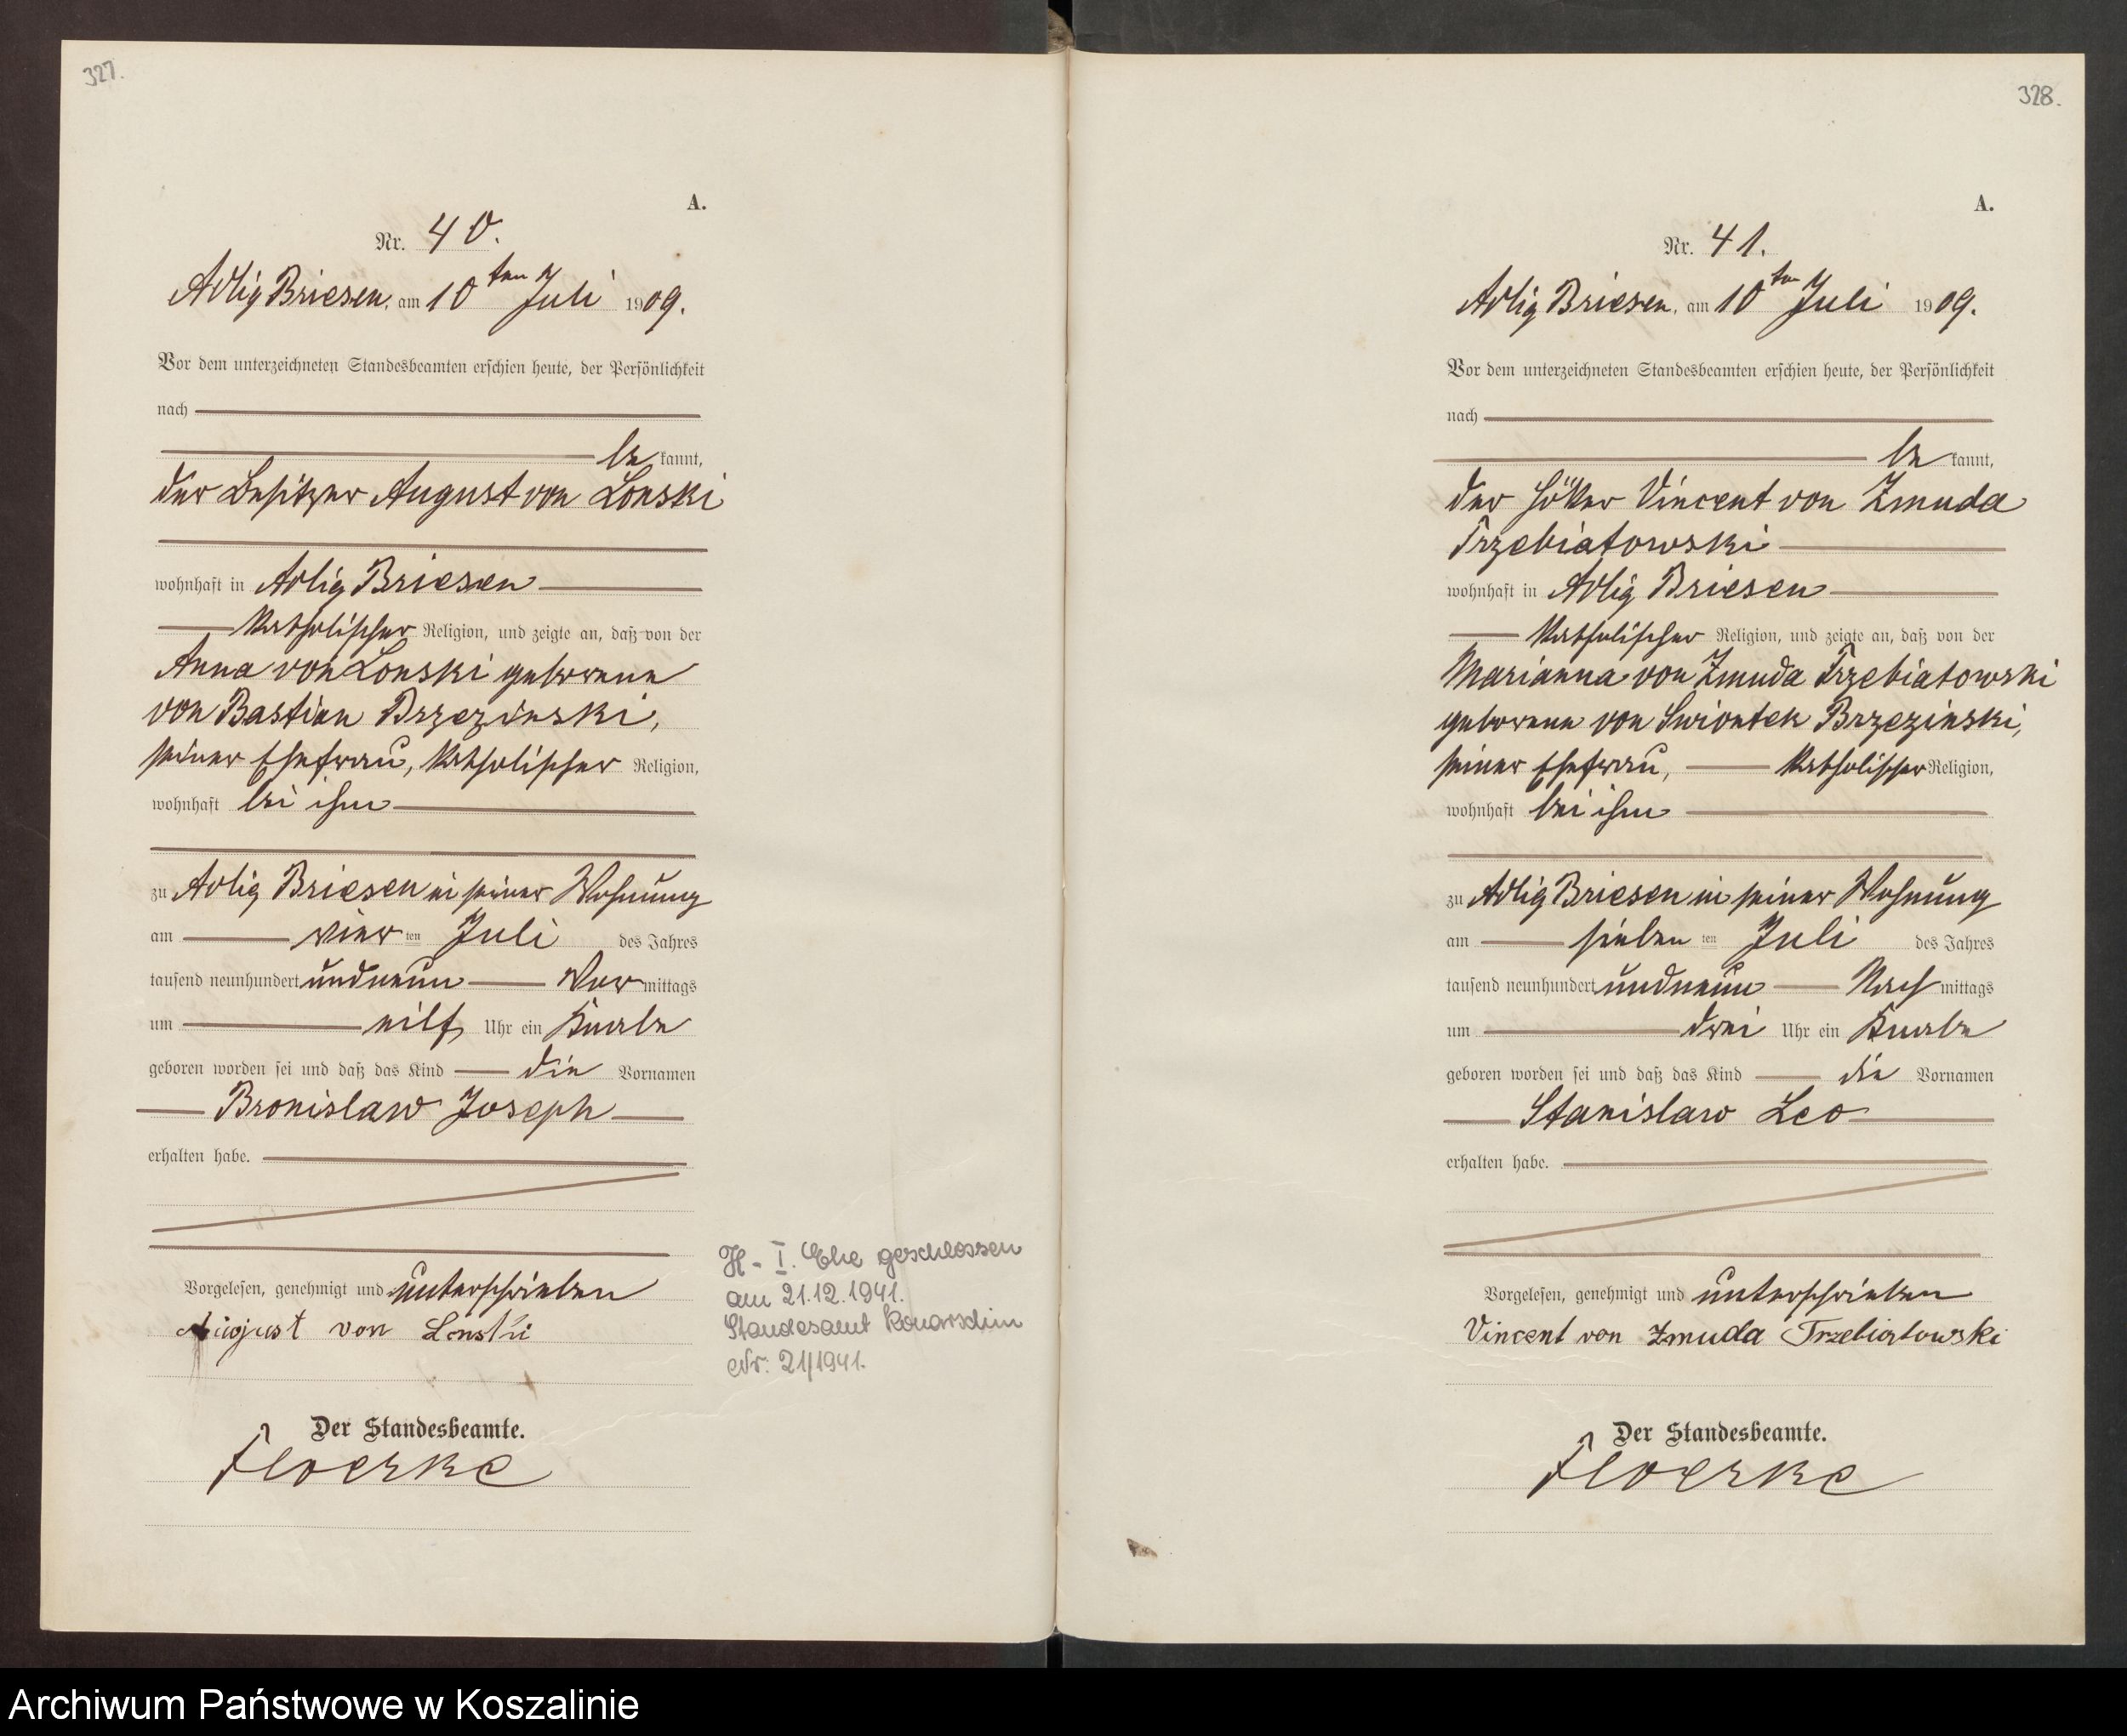 327.
A.
Nr. 40.
Adlig Briesen, am 10ten Juli 1909.
Vor dem unterzeichneten Standesbeamten erschien heute, der Persönlichkeit
nach
be kannt,
der Besitzer August von Lonski
wohnhaft in Adlig Briesen
katholischer Religion, und zeigte an, daß von der
Anna von Lonski geborene
von Bastian Brzezinski,
seiner Ehefrau, katholischer Religion,
wohnhaft bei ihm
zu Adlig Briesen in seiner Wohnung
am vier ten Juli des Jahres
tausend neunhundert und neun Vor mittags
um eilf Uhr ein Knabe
geboren worden sei und daß das Kind die Vornamen
Bronislaw Joseph
erhalten habe.
Vorgelesen, genehmigt und unterschrieben
August von Lonski
Der Standesbeamte.
Floerke
H - I. Ehe geschlossen
am 21.12.1941.
Standesamt Konarschin
Nr: 21/1941.
328.
A.
Nr. 41.
Adlig Briesen, am 10ten Juli 1909.
Vor dem unterzeichneten Standesbeamten erschien heute, der Persönlichkeit
nach
be kannt,
der Höker Vincent von Zmuda
Trzebiatowski
wohnhaft in Adlig Briesen
katholischer Religion, und zeigte an, daß von der
Marianna von Zmuda Trzebiatowski
geborene von Swiontek Brzezinski,
seiner Ehefrau, katholischer Religion,
wohnhaft bei ihm
zu Adlig Briesen in seiner Wohnung
am sieben ten Juli des Jahres
tausend neunhundert und neun Nach mittags
um drei Uhr ein Knabe
geboren worden sei und daß das Kind die Vornamen
Stanislaw Leo
erhalten habe.
Vorgelesen, genehmigt und unterschrieben
Vincent von Zmuda Trzebiatowski
Der Standesbeamte.
Floerke
Archiwum Państwowe w Koszalinie